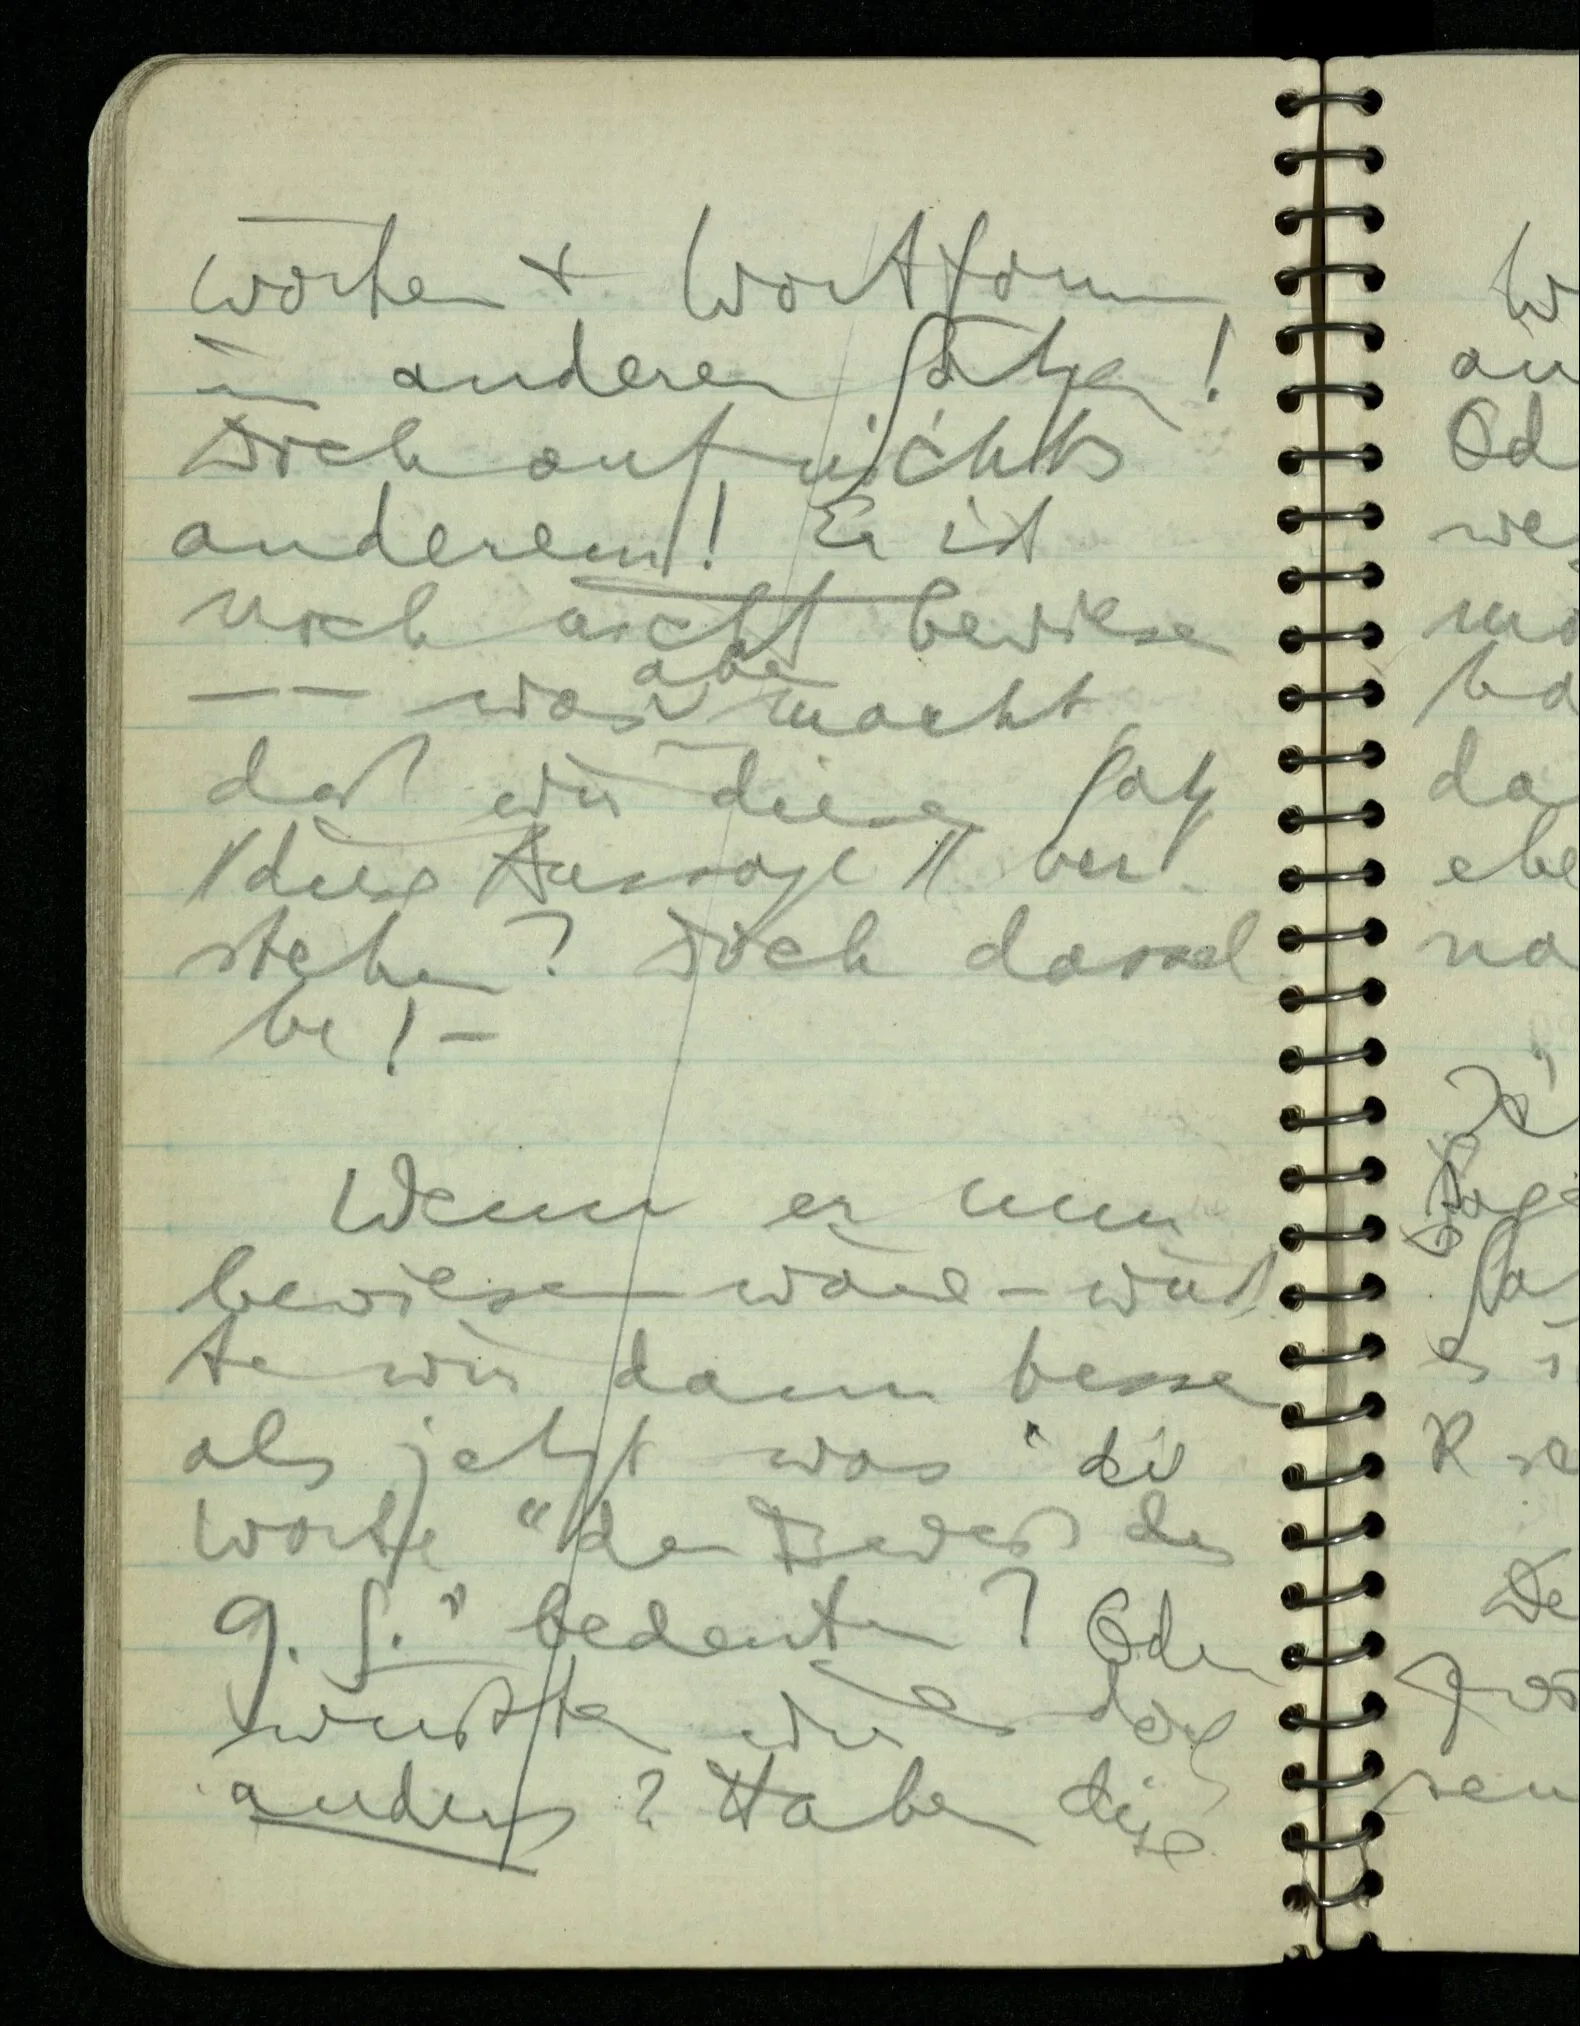 Worten + Wortform
in anderen Sätzen!
Doch auf nichts
anderem! Er ist
noch nicht bewiesen
— — was aber macht
daß wir diesen Satz
//diese Aussage// ver-
stehen? Doch dassel
be! –
Wenn er nun
bewiesen wäre – wüß
ten wir dann besser
als jetzt was die
Worte "der Beweis des
G. S." bedeuten? Oder
wüßten wir es doch
anders? Haben diese
W
an
Od
we
mö
ba
da
ebe
na
Sa
es i
R se
De
sen